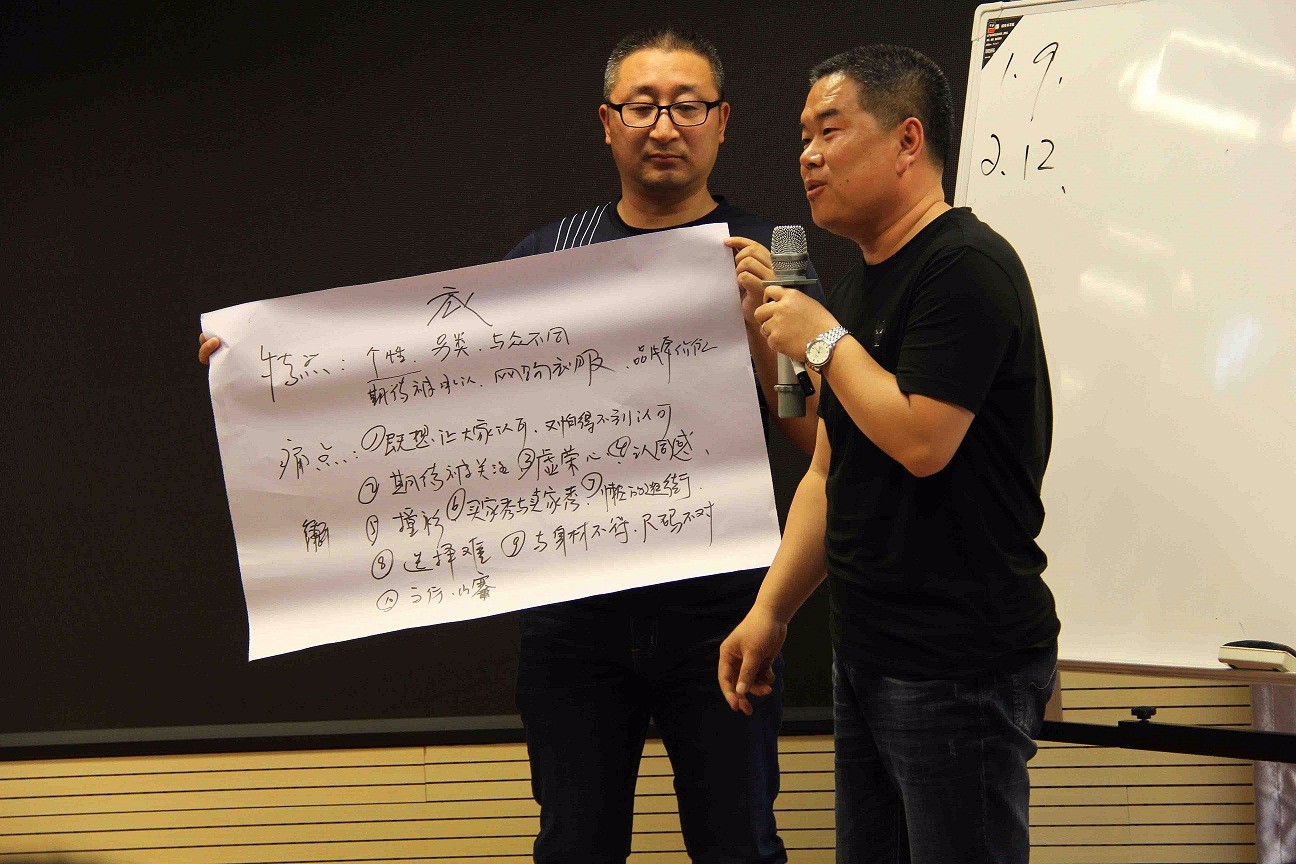 衣
特点：个性、另类、与众不同
期待被承认、网购衣服、品牌
痛点：①既想让大家认可，又怕得不到认可
②期待被关注③虚荣心④认同感、
⑤撞衫⑥买家秀与卖家秀⑦懒的逛街.
⑧选择难⑨与身材不符、尺码不对
⑩
1.9.
2.12、